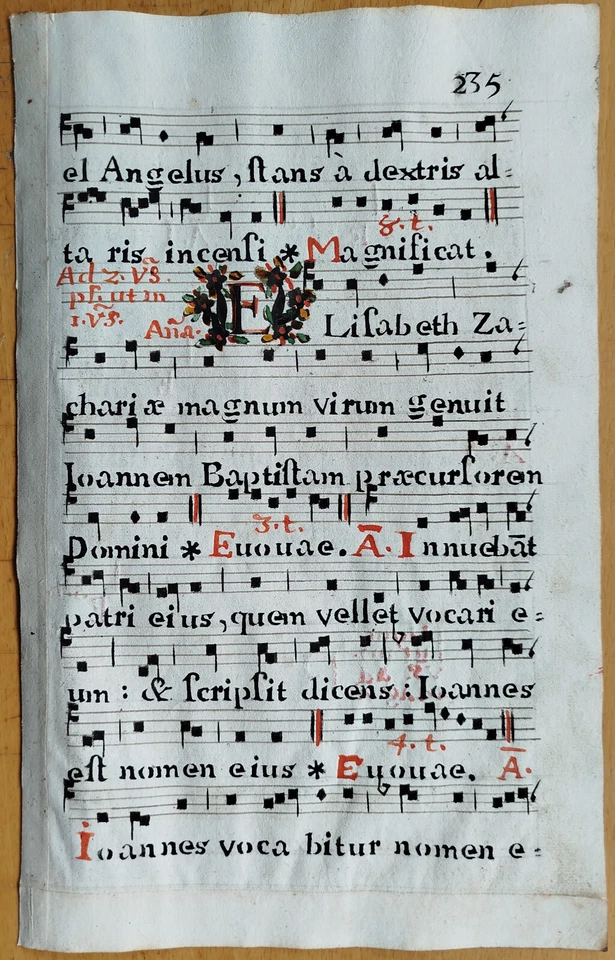 235
el Angelus, ſtans à dextris al=
8. t.
ta ris incenſi * Magnificat.
Ad 2. VS̃.
pſ. ut in
1. VS̃. Aña. ELiſabeth Za=
chari æ magnum virum genuit
Ioannem Baptiſtam præcurſorem
3. t.
Domini * Euouae. Ā. Innuebāt
patri eius, quem vellet vocari e=
um : & ſcripſit dicens : Ioannes
4. t.
eſt nomen eius * Euouae. Ā.
Ioannes voca bitur nomen e=